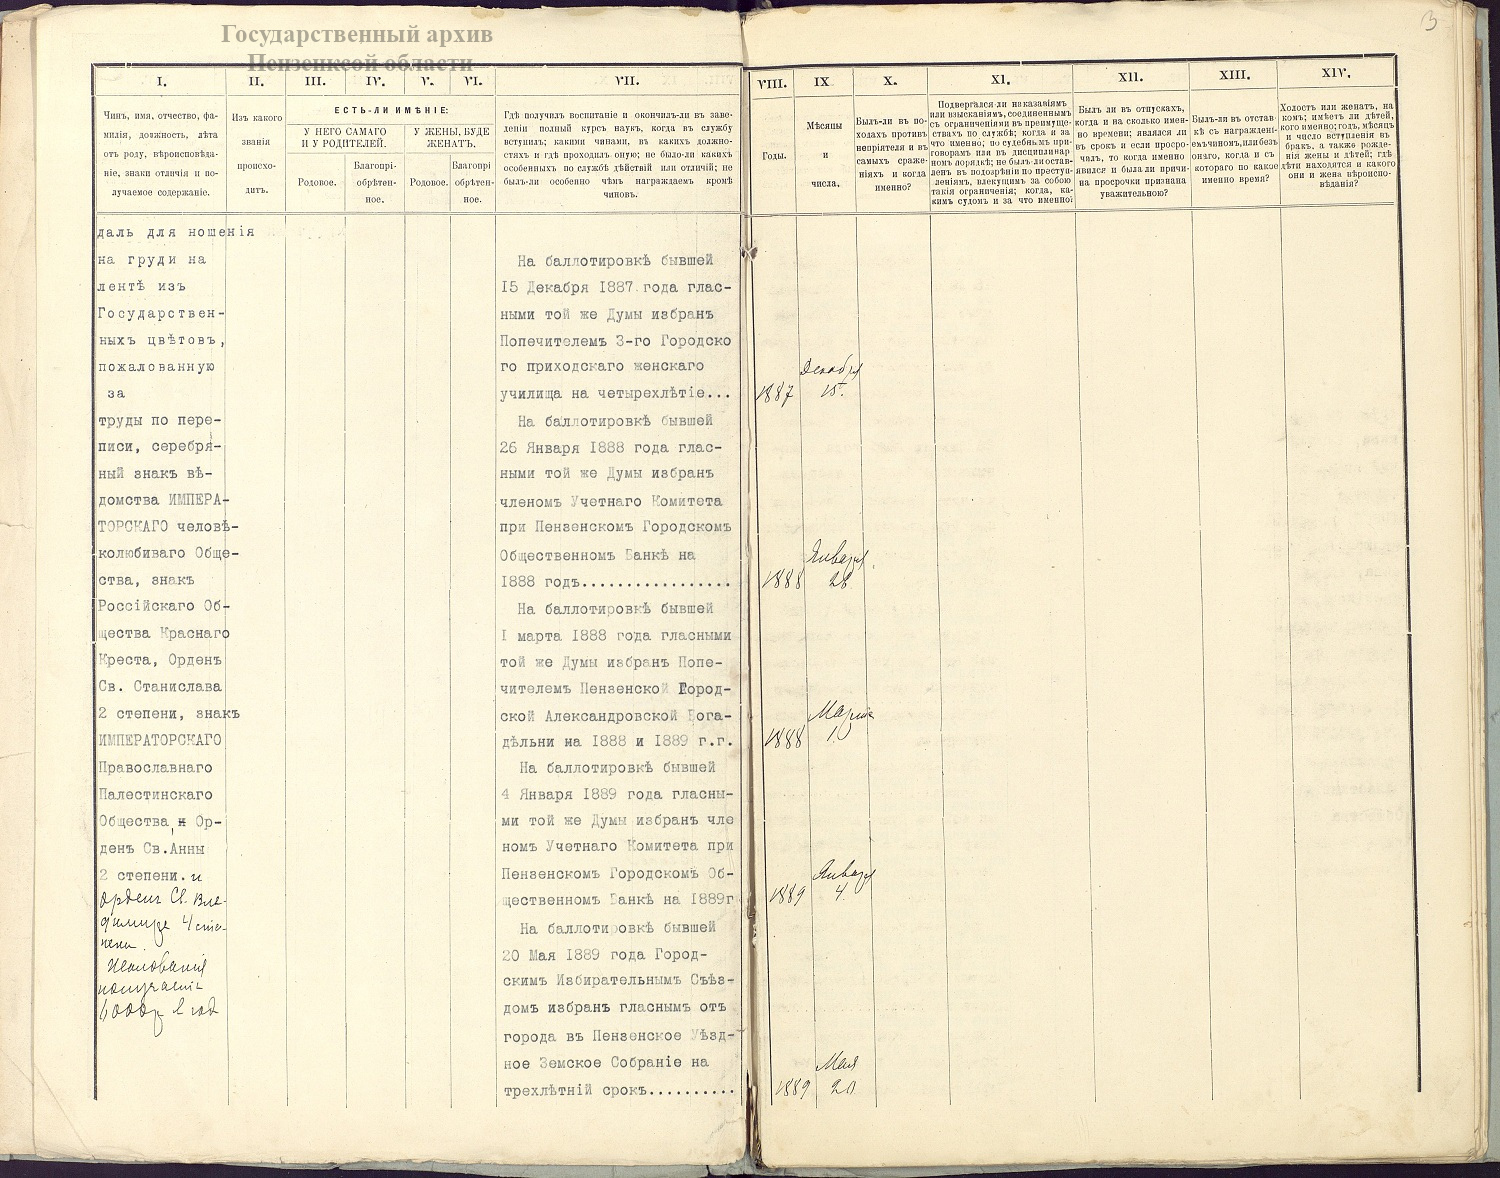 Государственный архив
Пензенкской области
3
I.
Чинъ, имя, отчество, фа-
милія, должность, лѣта
отъ роду, вѣроисповѣда-
ніе, знаки отличія и по-
лучаемое содержаніе.
II.
Изъ какого
званія
происхо-
дитъ.
III.
IV.
V.
VI.
ЕСТЬ-ЛИ ИМѢНІЕ:
У НЕГО САМАГО
И У РОДИТЕЛЕЙ.
У ЖЕНЫ, БУДЕ
ЖЕНАТЪ.
Родовое.
Благопрі-
обрѣтен-
ное.
Родовое.
Благопрі
обрѣтен-
ное.
VII.
Гдѣ получилъ воспитаніе и окончилъ-ли въ заве-
деніи полный курсъ наукъ, когда въ службу
вступилъ; какими чинами, въ какихъ должно-
стяхъ и гдѣ проходилъ оную; не было-ли какихъ
особенныхъ по службѣ дѣйствій или отличій; не
былъ-ли особенно чѣмъ награждаемъ кромѣ
чиновъ.
VIII.
Годы.
IX
Мѣсяцы
и
числа.
X.
Былъ-ли въ по-
ходахъ противъ
непріятеля и въ
самыхъ сраже-
ніяхъ и когда
именно?
XI.
Подвергался-ли наказаніямъ
или взысканіямъ, соединеннымъ
съ ограниченіями въ преимуще-
ствахъ по службѣ; когда и за
что именно; по судебнымъ при-
говорамъ или въ дисциплинар-
номъ порядкѣ; не былъ-ли остав-
ленъ въ подозрѣніи по преступ-
леніямъ, влекущимъ за собою
такія ограниченія; когда, ка-
кимъ судомъ и за что именно?
XII.
Былъ ли въ отпускахъ,
когда и на сколько имен-
но времени; являлся ли
въ срокъ и если просро-
чалъ, то когда именно
явился и была ли причи-
на просрочки признана
уважительною?
XIII.
Былъ-ли въ отстав-
кѣ съ награжден-
емъ чиномъ, или безъ
онаго, когда и съ
котораго по какое
именно время?
XIV.
Холостъ или женатъ, на
комъ; имѣетъ ли дѣтей,
кого именно; годъ, мѣсяцъ
и число вступленія въ
бракъ, а также рожде-
нія жены и дѣтей; гдѣ
дѣти находятся и какого
они и жена вѣроиспо-
вѣданія?
даль для ношенія
на груди на
лентѣ изъ
Государствен-
ныхъ цвѣтовъ,
пожалованную
за
труды по пере-
писи, серебря-
ный знакъ вѣ-
домства ИМПЕРА-
ТОРСКАГО человѣ-
колюбиваго Обще-
ства, знакъ
Россійскаго Об-
щества Краснаго
Креста, Орденъ
Св. Станислава
2 степени, знакъ
ИМПЕРАТОРСКАГО
Православнаго
Палестинскаго
Общества, и Ор-
денъ Св.Анны
2 степени. и
орденъ Св. Вла-
диміра 4 сте-
пени.
Жалованія
получаетъ
6000р въ годъ
На баллотировкѣ бывшей
15 Декабря 1887 года глас-
ными той же Думы избранъ
Попечителемъ 3-го Городско
го приходскаго женскаго
училища на четырехлѣтіе...
1887
Декабря
15.
На баллотировкѣ бывшей
26 Января 1888 года глас-
ными той же Думы избранъ
членомъ Учетнаго Комитета
при Пензенскомъ Городскомъ
Общественномъ Банкѣ на
1888 годъ.................
1888
Января
На баллотировкѣ бывшей
I марта 1888 года гласными
той же Думы избранъ Попе-
чителемъ Пензенской Город-
ской Александровской Бога-
дѣльни на 1888 и 1889 г.г.
1888
Марта
1.
На баллотировкѣ бывшей
4 Января 1889 года гласны-
ми той же Думы избранъ чле
номъ Учетнаго Комитета при
Пензенскомъ Городскомъ Об-
щественномъ Банкѣ на 1889г
1889
Января
4.
На баллотировкѣ бывшей
20 Мая 1889 года Город-
скимъ Избирательнымъ Съѣз-
домъ избранъ гласнымъ отъ
города въ Пензенское Уѣзд-
ное Земское Собраніе на
трехлѣтній срокъ..........
1889
Мая
20.